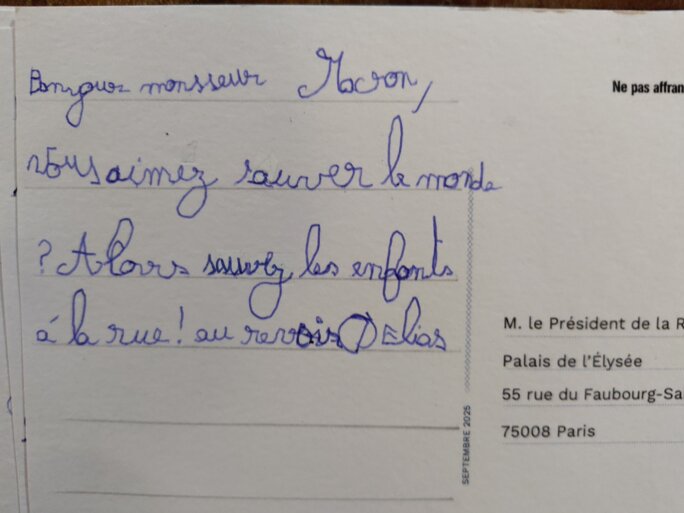 Bonjour monsseur Macron,
vous aimez sauver le monde
? Alors sauvez les enfants
à la rue! au revoir Elias
Ne pas affran
M. le Président de la R
Palais de l'Élysée
55 rue du Faubourg-Sa
75008 Paris
SEPTEMBRE 2025